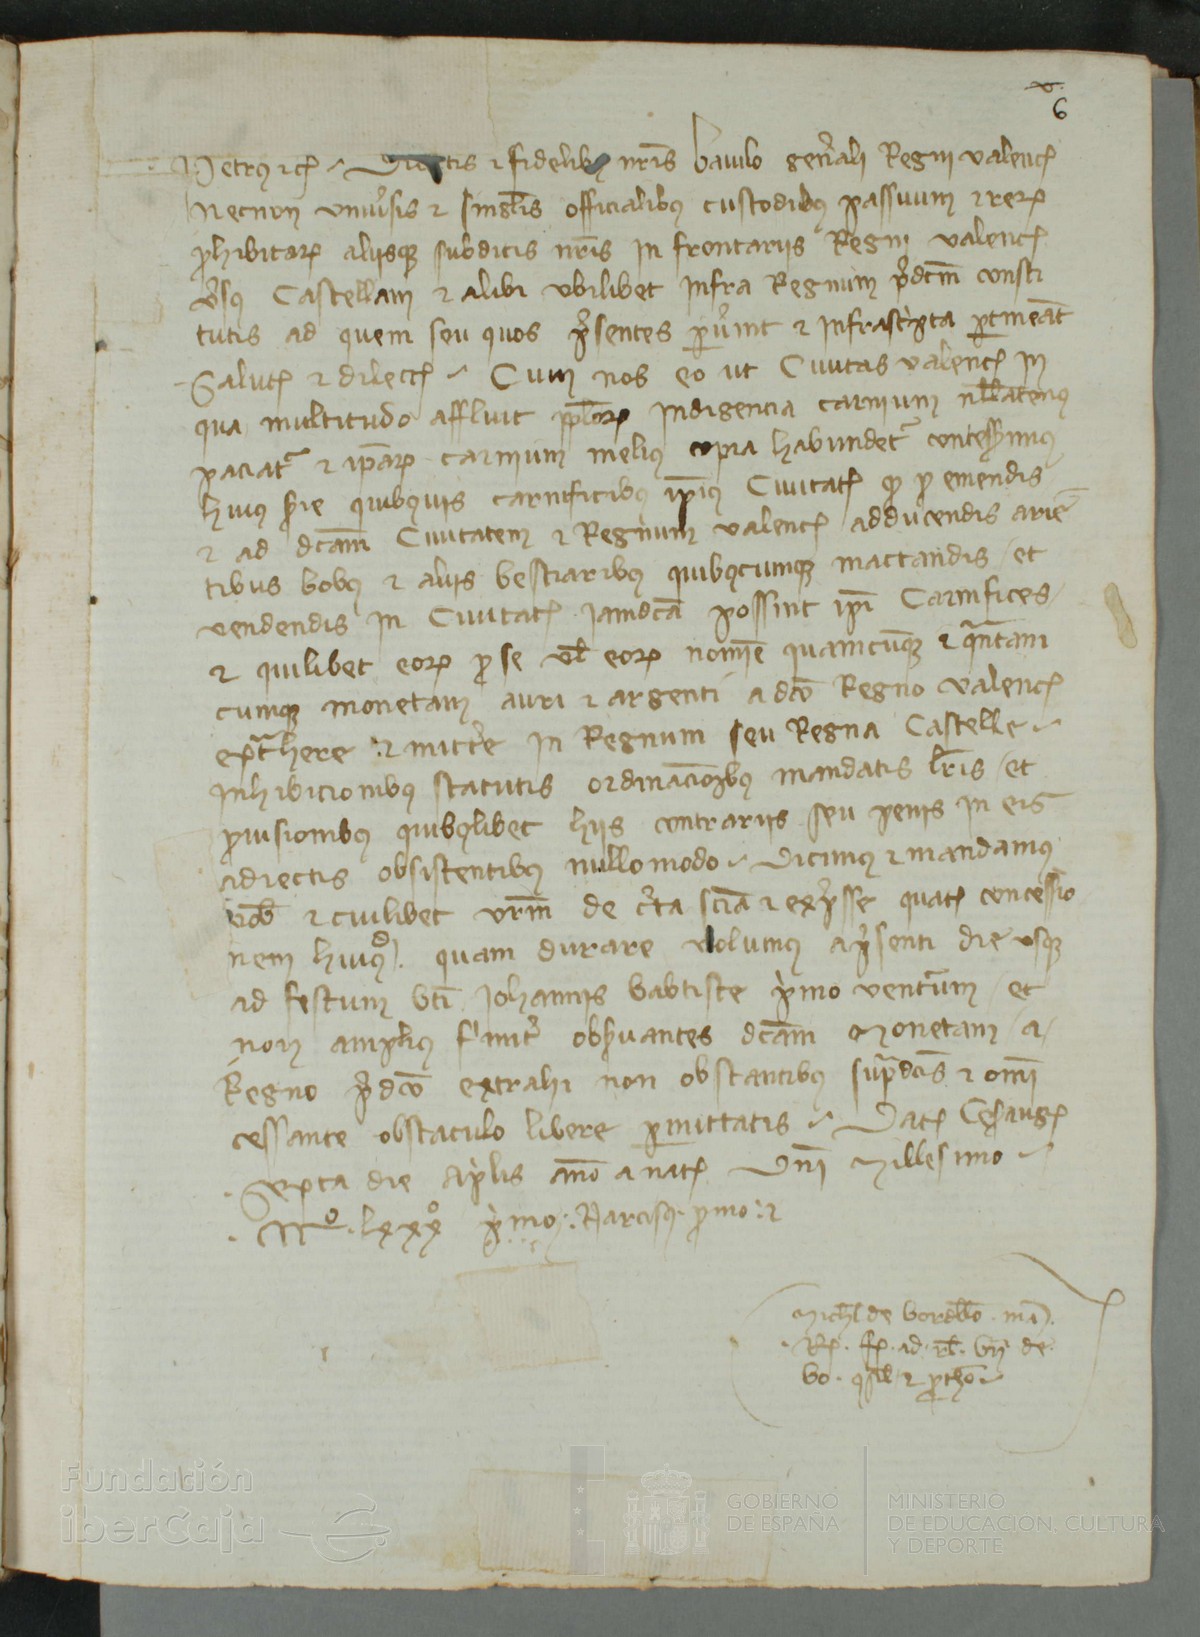 v.
6
Petrus etc. Dilectis et fidelibus nr̃is baiulo gen̄ali Regni valencie
Necnon univ̄sis et singlis officialibus custodibus passuum et rerum
phibitarum aliisque subditis nr̃is in frontariis Regni valencie
v̄sus Castellam et alibi ubilibet infra Regnum p̄dcm consti
tutis ad quem seu quos p̄sentes pv̄int et infrascripta ptineāt
Salutem et dileccionem Cum nos eo ut Civitas valencie in
qua multitudo affluit pplorum indigencia carnium nllatenus
paciatur et iparum carnium melius copia habundetur concessimus
huius serie quibusvis carnificibus ipius Civitatis quod pro emendis
et ad dcam Civitatem et Regnum valencie adducendis arie
tibus bobus et aliis bestiaribus quibuscumque mactandis et
vendendis in Civitate jamdcā possint ipi Carnifices
et quilibet eorum pro se vel eorum nomīe quamcumque et quantam
cumque monetam auri et argenti a dco Regno valencie
extrahere et mitt̄e in Regnum seu Regna Castelle
Inhibicionibus statutis ordinacionibus mandatis lr̃is et
provisionibus quibuslibet hiis contrariis seu penis in eis
adiectis obsistentibus nullomodo Dicimus et mandamus
vob et cuilibet vr̃m de c̄ta scia et exp̄sse quatenus concessio
nem huiusmodi quam durare volumus a p̄senti die usque
ad festum bti Johannis babtiste p̄mo venturum et
non amplius firmiter observantes dcam Monetam a
Regno p̄dco extrahi non obstantibus supradcis et omi
cessante obstaculo libere pmittatis Dat Cesarauguste
Septa die Aprilis anno a nat Dni Millesimo
Mº. lxxxº p̄mo. Narcisus. p̄mo. etc
Michl de bordllo